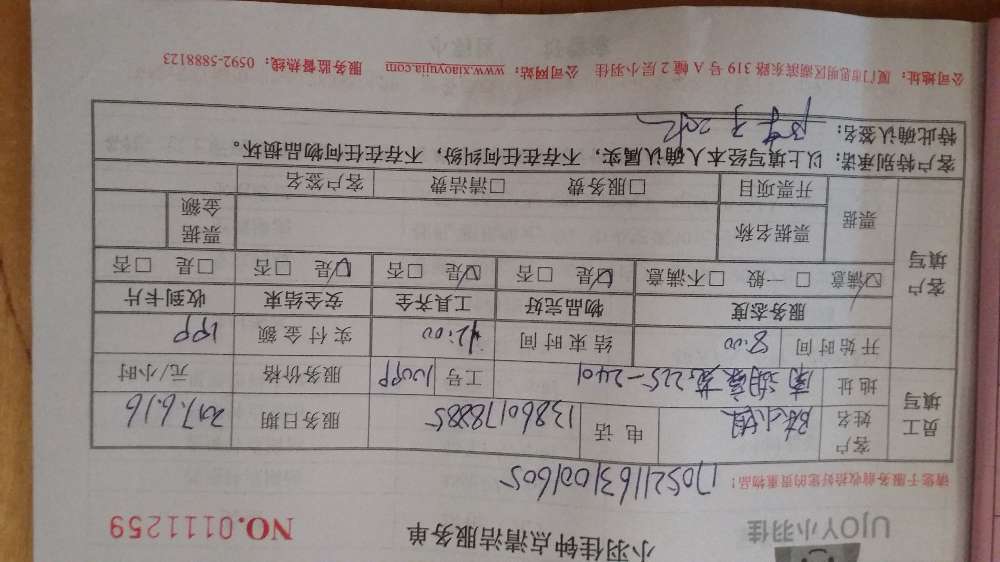 UJOY小羽佳
小羽佳钟点清洁服务单
NO.0111259
请您于服务前收拾好您的贵重物品!
1705211631001605
员工填写
客户姓名 陈小姐 电话 13860178885 服务日期 2017.6.16
地址 南湖豪苑225-2401 工号 服务价格 元/小时
开始时间 8:00 结束时间 12:00 实付金额 199
客户填写
服务态度 物品完好 工具齐全 安全结束 收到卡片
☑满意 □一般 □不满意 ☑是 □否 ☑是 □否 ☑是 □否 □是 □否
票据 票据名称 票据金额
开票项目 □服务费 □清洁费 客户签名
客户特别承诺:以上填写经本人确认属实,不存在任何纠纷,不存在任何物品损坏。
特此确认签名:
公司地址:厦门市思明区湖滨东路319号A幢2层小羽佳 公司网站:www.xiaoyujia.com 服务监督热线:0592-5888123